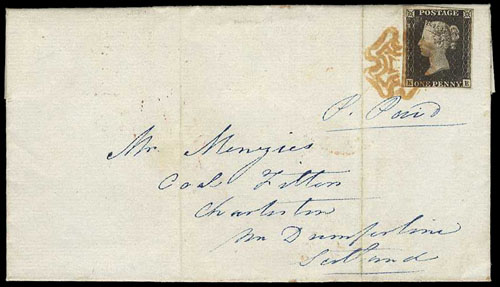 POSTAGE
K E
ONE PENNY
P. Paid
Mr Menzies
Coal Fitter
Charleston
Nr Dumferline
Scotland